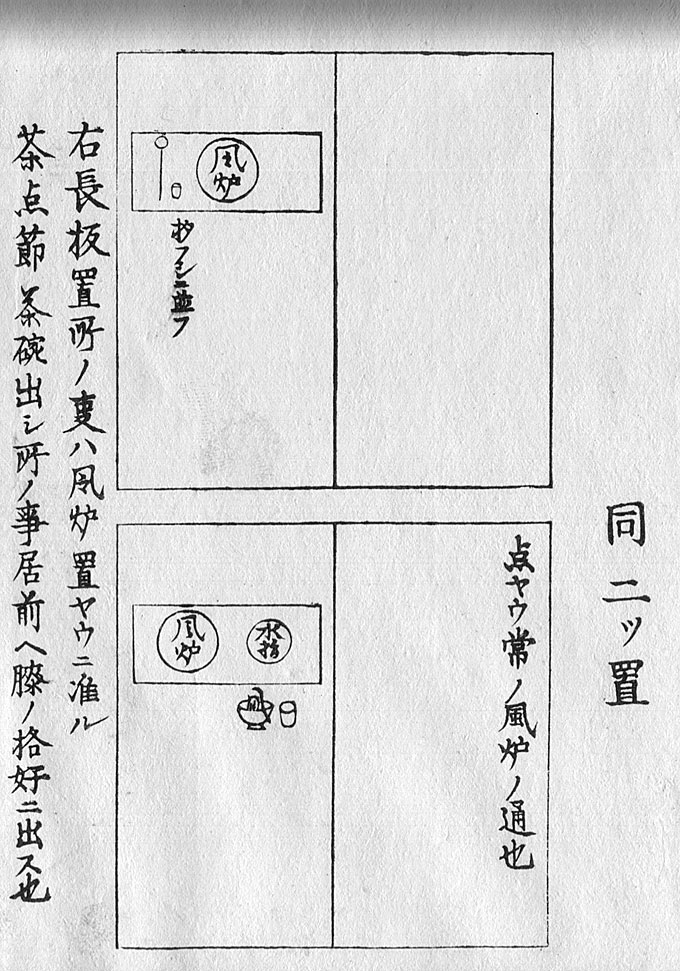 同二ッ置
点ヤウ常ノ風炉ノ通也
水指
風炉
風炉
右長板置所ノ事ハ風炉置ヤウニ准ル
茶点節茶碗出シ所ノ事居前ヘ膝ノ格好ニ出ス也